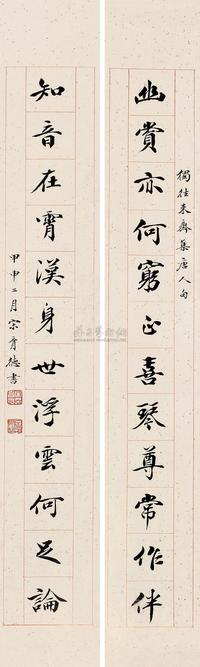 幽賞亦何窮正喜琴尊常作伴
獨往來齋集唐人句
知音在霄漢身世浮雲何足論
甲申二月宗育德書